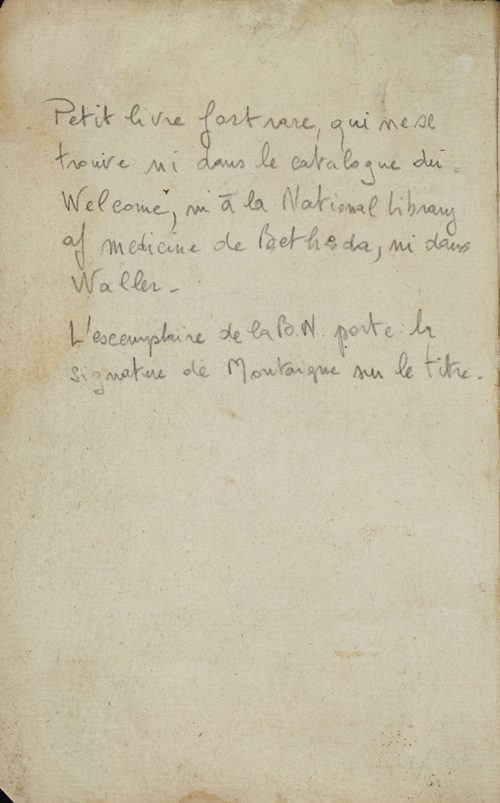 Petit livre fort rare, qui ne se
trouve ni dans le catalogue du
Welcome, ni à la National Library
of medicine de Bethesda, ni dans
Waller.
L'exemplaire de la B.N. porte la
signature de Montaigne sur le titre.